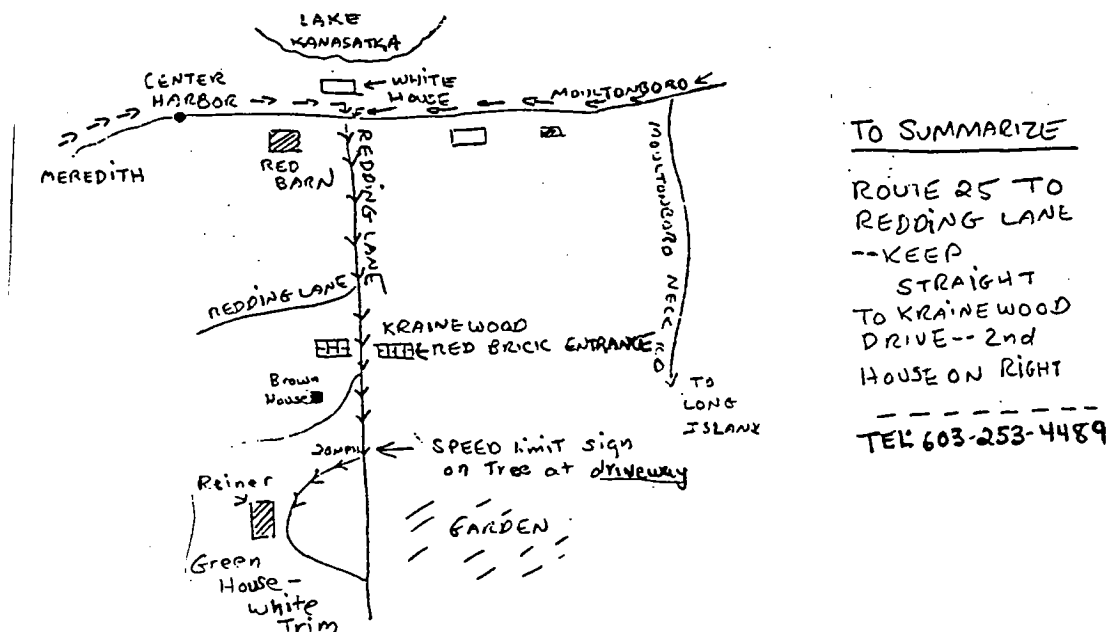 LAKE
KANASATKA
WHITE
HOUSE
CENTER
HARBOR
MOULTONBORO
MEREDITH
RED
BARN
REDDING LANE
MOULTONBORO NECK RD
REDDING LANE
KRAINEWOOD
RED BRICK ENTRANCE
Brown
House
TO
LONG
ISLAND
20MPH
SPEED limit sign
on Tree at driveway
Reiner
GARDEN
Green
House -
White
Trim
TO SUMMARIZE
ROUTE 25 TO
REDDING LANE
--KEEP
STRAIGHT
TO KRAINEWOOD
DRIVE-- 2nd
HOUSE ON RIGHT
TEL: 603-253-4489